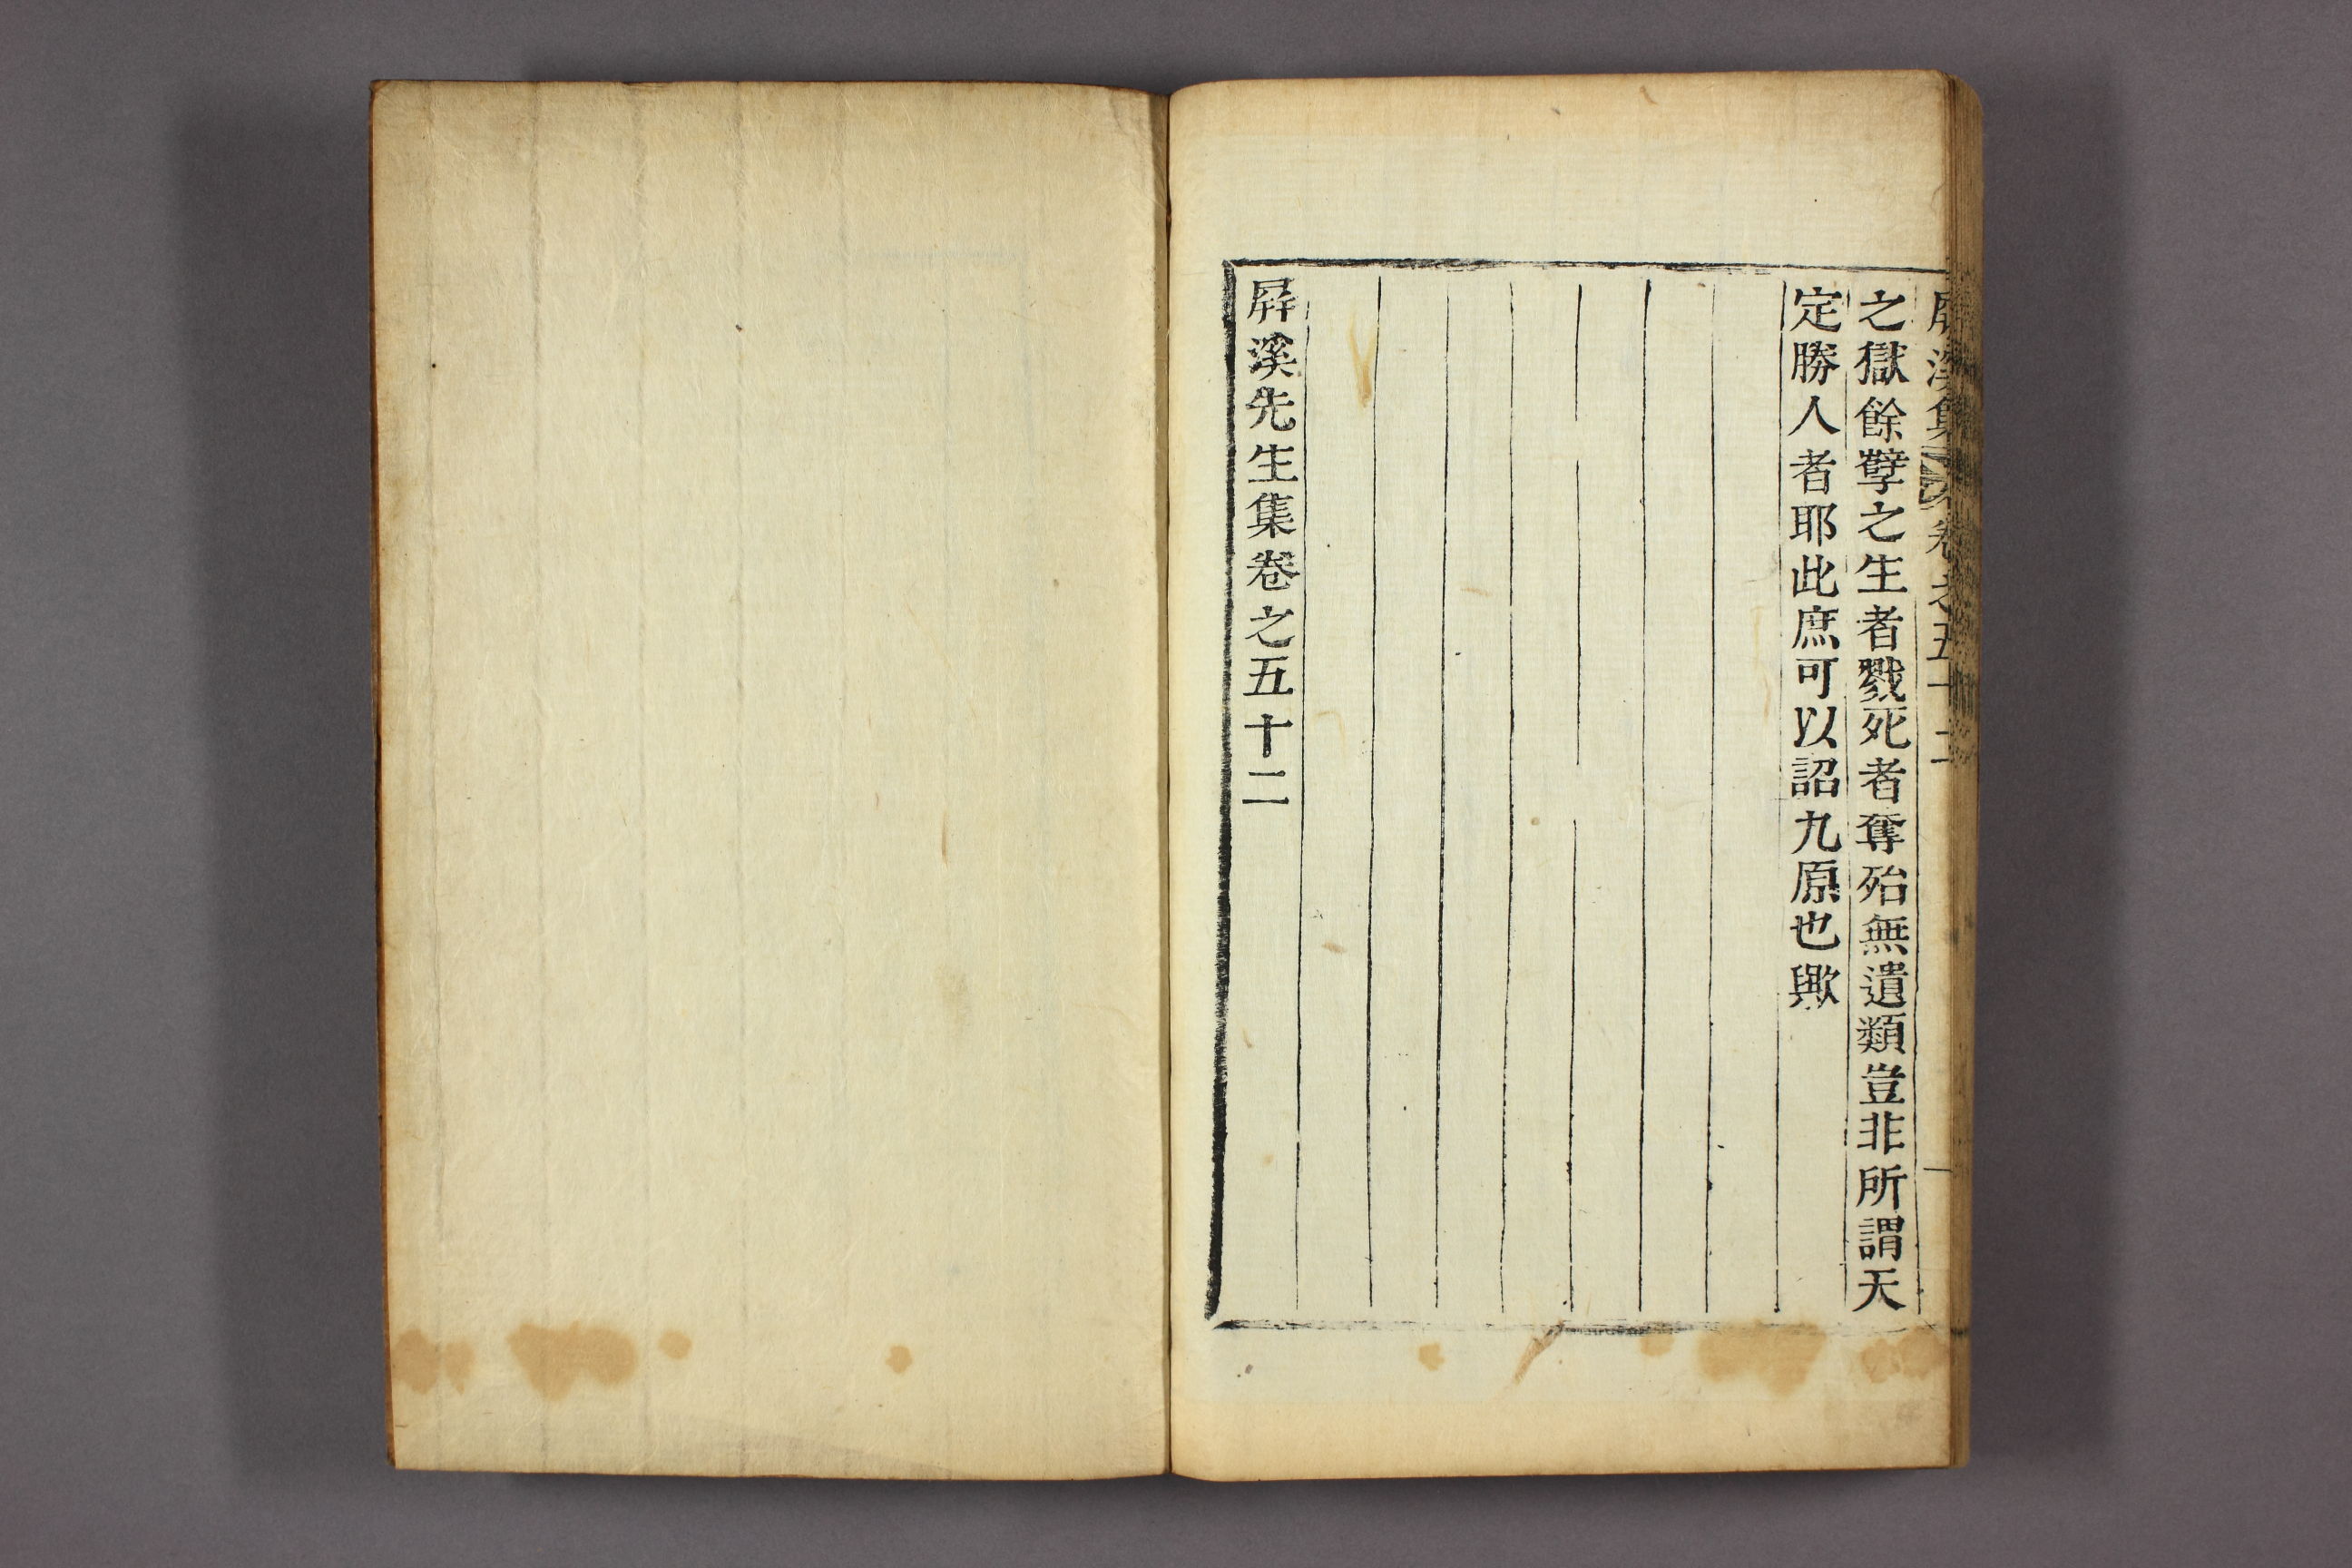 屛溪集 卷之五十二
之獄餘孼之生者戮死者奪殆無遺類豈非所謂天
定勝人者耶此庶可以詔九原也歟
屛溪先生集卷之五十二